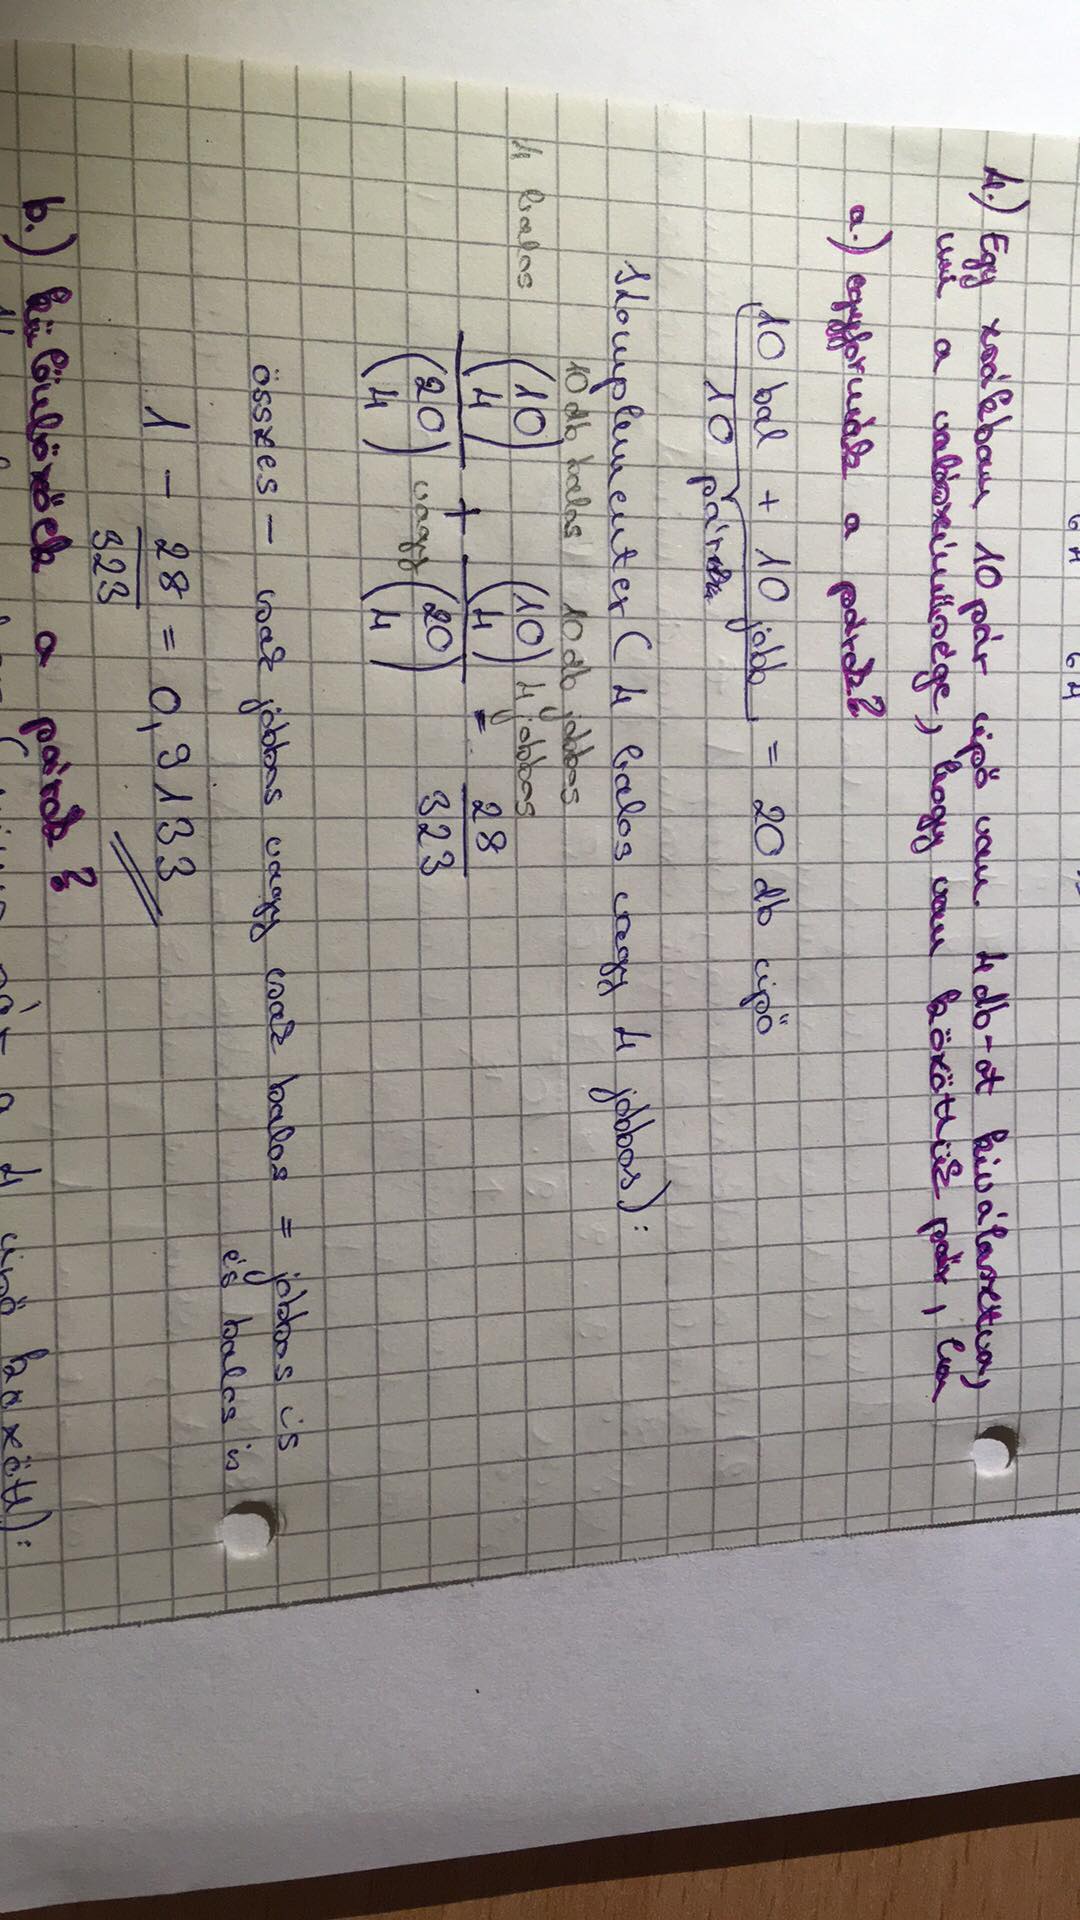 4.) Egy zsákban 10 pár cipő van. 4 db-ot kiválasztva,
mi a valószínűsége, hogy van közöttük pár, ha
a.) egyformák a párok?
10 bal + 10 jobb = 20 db cipő
10 párban
Komplementer (4 balos vagy 4 jobbos):
10 db balos 10 db jobbos
4 balos (10 4) / (20 4) + vagy (10 4) / (20 4) 4 jobbos = 28/323
összes – csak jobbos vagy csak balos = jobbos is
és balos is
1 - 28/323 = 0,9133
b.) különbözőek a párok?
pár a 4 cipő között):